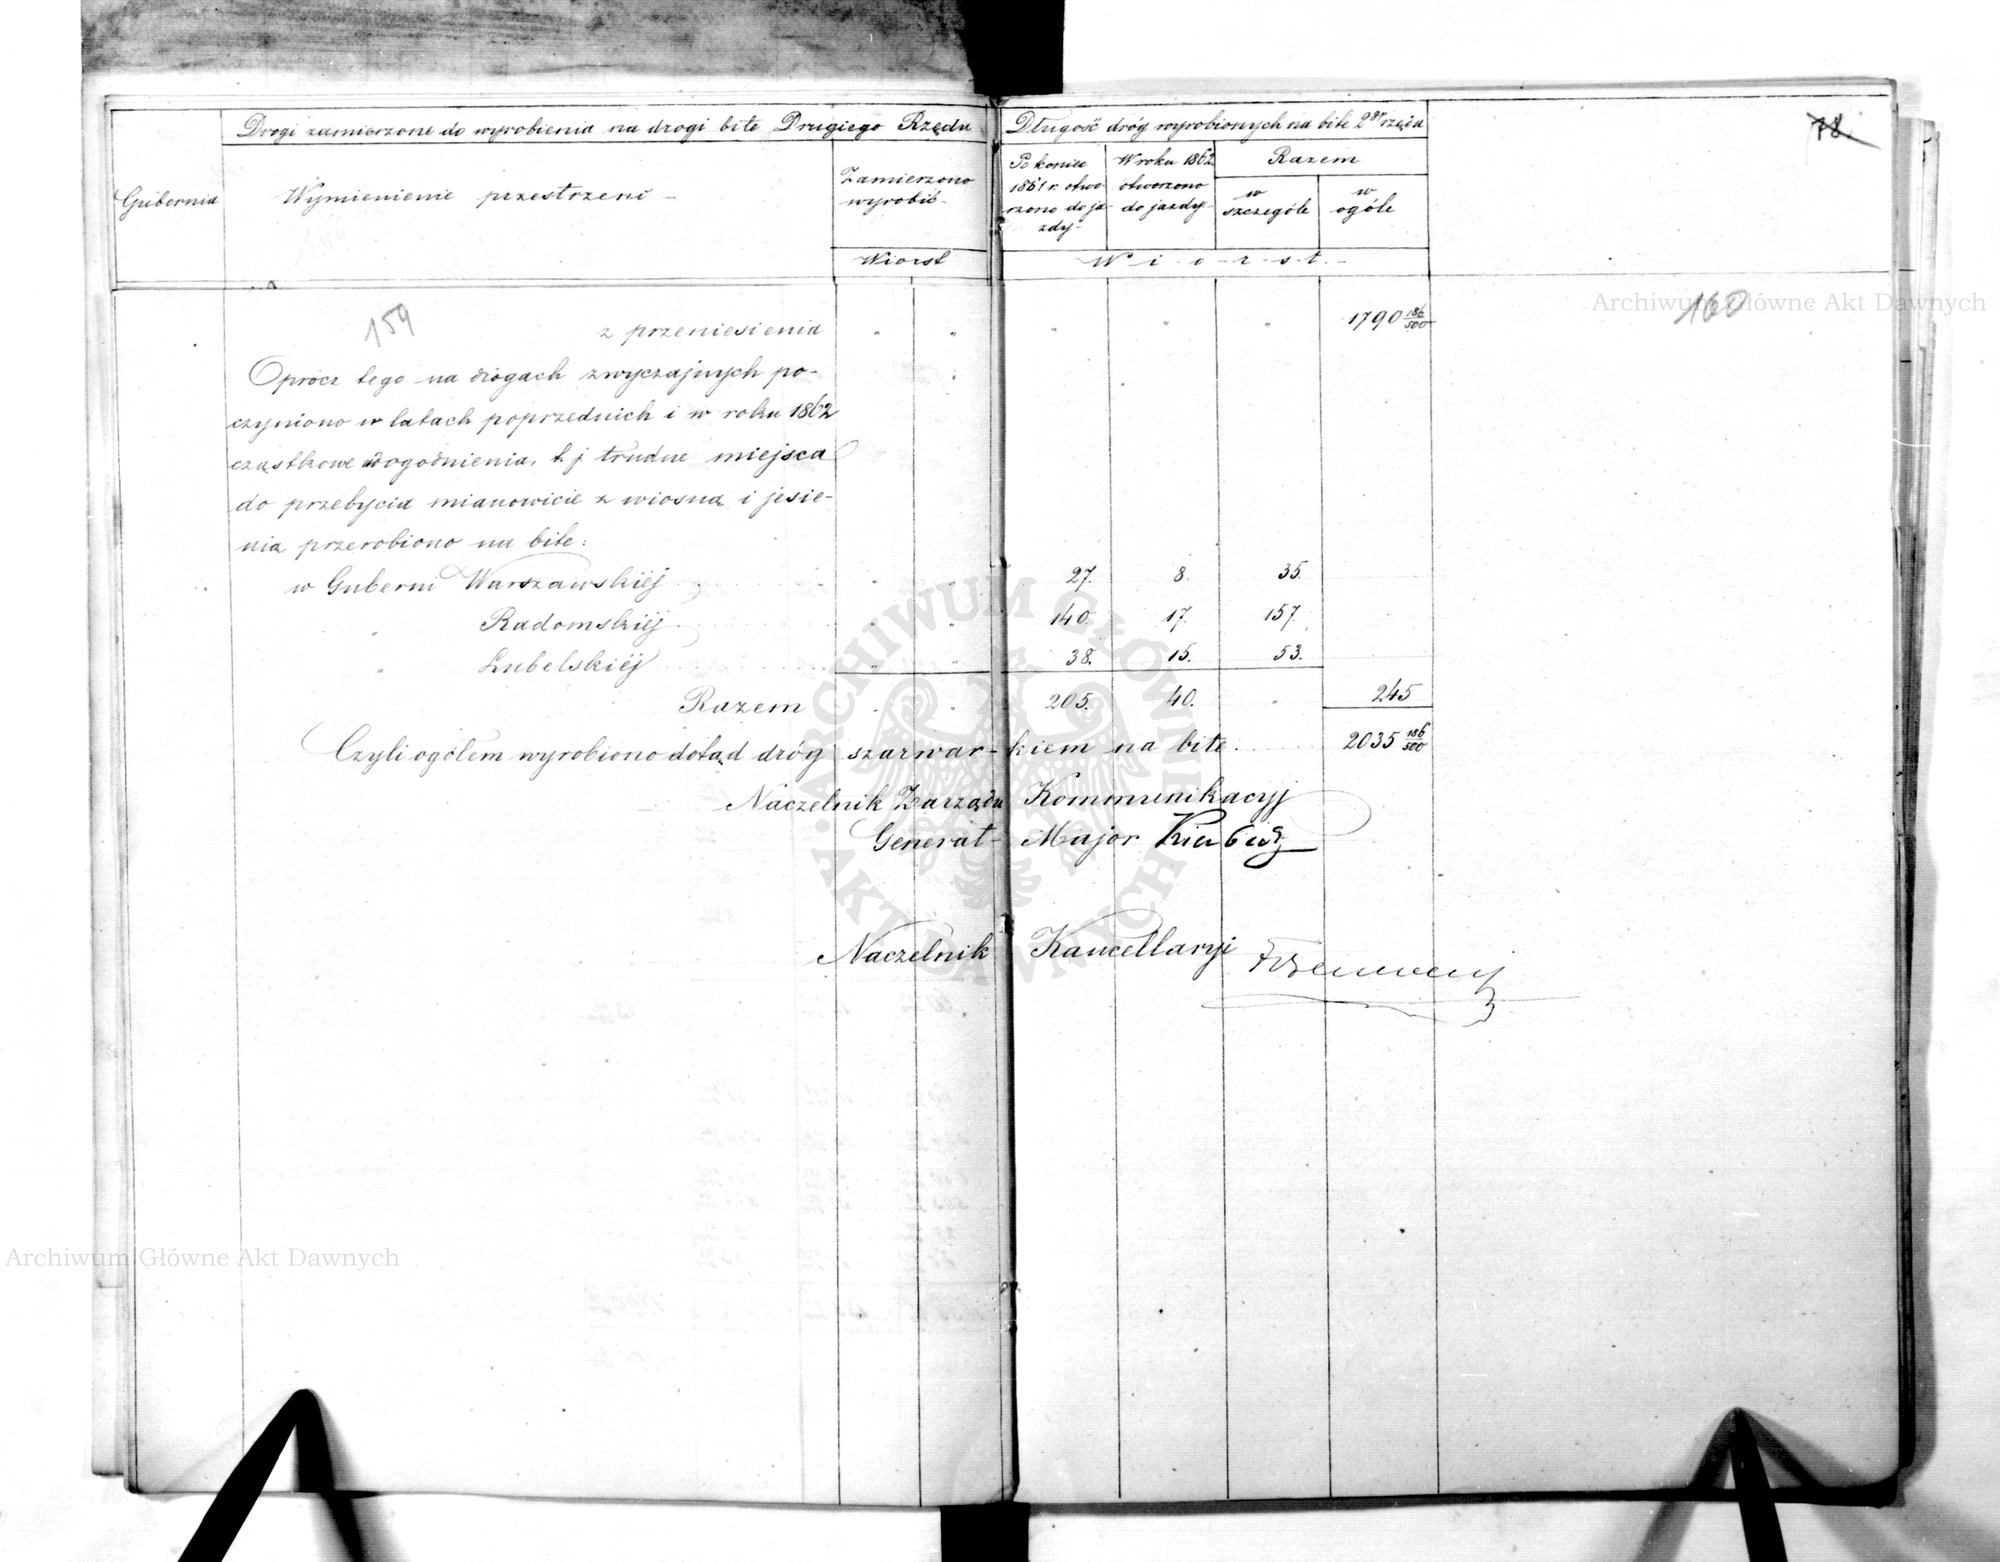 Drogi zamierzone do wyrobienia na drogi bite Drugiego Rzędu
Długość dróg wyrobionych na bite 2go rzędu
78.
Gubernia
Wymienienie przestrzeni -
Zamierzono wyrobić -
Po koniec 1861 r. otworzono do jazdy -
W roku 1862 otworzono do jazdy -
Razem
w szczególe
w ogóle
Wiorst
W i o r s t -
159
160
z przeniesienia " " " " " 1790 186/500
Oprócz tego na drogach zwyczajnych po-
czyniono w latach poprzednich i w roku 1862
cząstkowe dogodnienia, t. j trudne miejsca
do przebycia mianowicie z wiosną i jesie-
nią przerobiono na bite:
w Guberni Warszawskiéj " " 27. 8. 35.
" Radomskiéj " " 140. 17. 157.
" Lubelskiéj " " 38. 15. 53.
Razem " " 205. 40. " 245
Czyli ogółem wyrobiono dotąd dróg szarwar-kiem na bite 2035 186/500
Naczelnik Zarządu Kommunikacyj
Generał-Major Kierbedź
Naczelnik Kancellaryi
Archiwum Główne Akt Dawnych
Archiwum Główne Akt Dawnych
ARCHIWUM GŁÓWNE AKT DAWNYCH